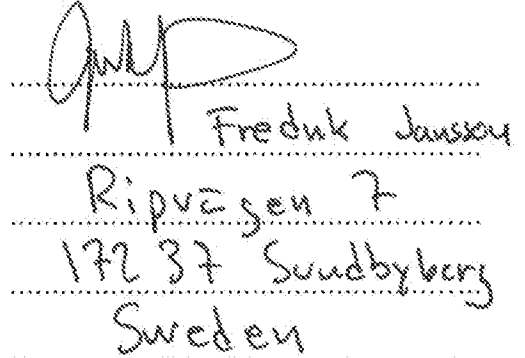 Fredrik Jansson
Ripvägen 7
172 37 Sundbyberg
Sweden